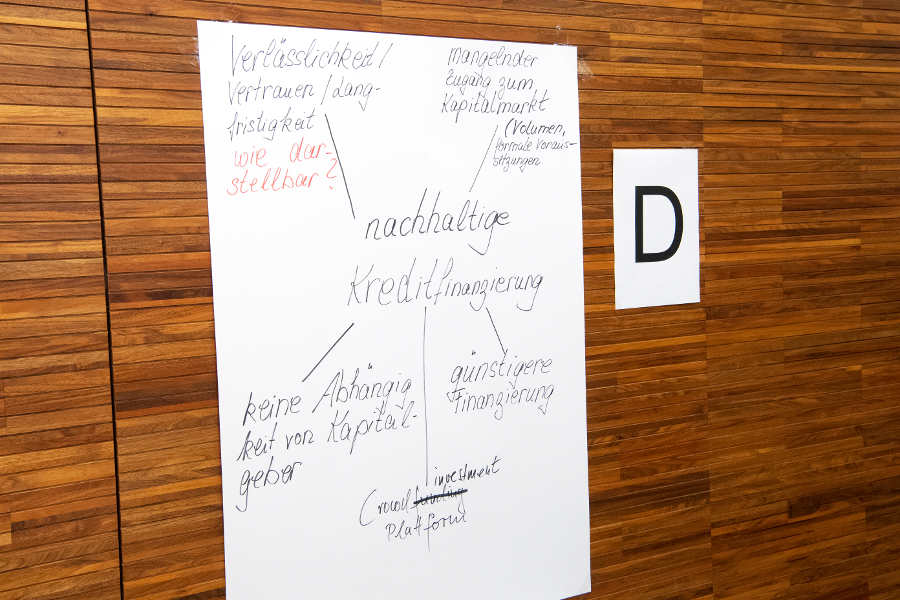 Verlässlichkeit/
Vertrauen/Lang-
fristigkeit
wie dar-
stellbar?
mangelnder
Zugang zum
Kapitalmarkt
(Volumen,
formale Voraus-
sitzungen
nachhaltige
Kreditfinanzierung
keine Abhängig
keit von Kapital-
geber
günstigere
Finanzierung
investment
Crowdfunding
Plattform
D